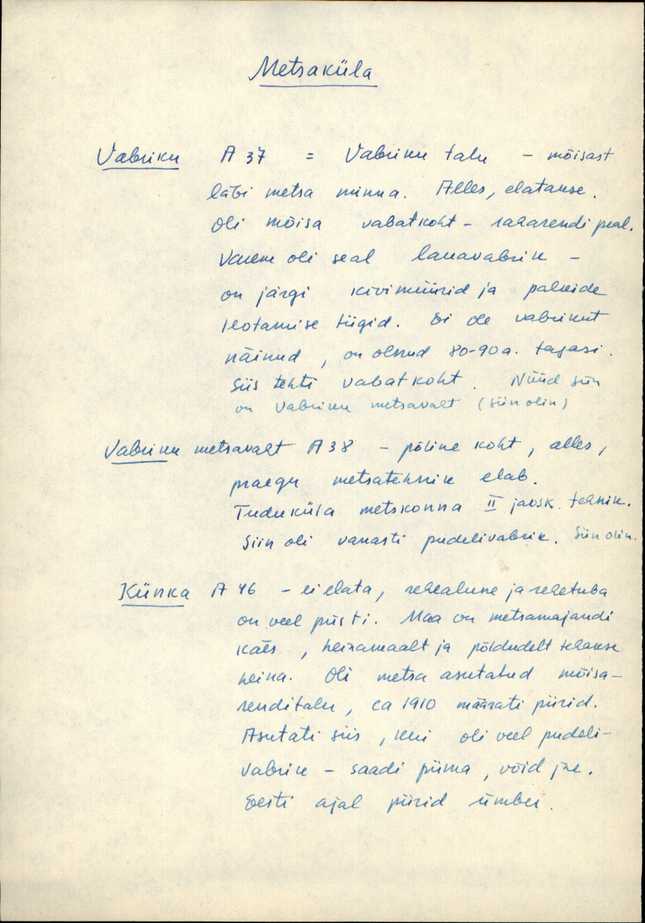 Metsaküla
Vabriku A 37 = Vabriku talu – mõisast
läbi metsa minna. Alles, elatakse.
Oli mõisa vabatkoht – raharendi peal.
Varem oli seal lauavabrik –
on järgi kivimüürid ja palkide
leotamise tiigid. Ei ole vabrikut
näinud, on olnud 80-90 a. tagasi.
Siis tehti vabatkoht. Nüüd siin
on Vabriku metsavaht (siin olin)
Vabriku metsavaht A 38 – põline koht, alles,
praegu metsatehnik elab.
Tuduküla metskonna II jaosk. tehnik.
Siin oli vanasti pudelivabrik. Siin olin.
Künka A 46 – ei elata, rehealune ja rehetuba
on veel püsti. Maa on metsamajandi
käes, heinamaalt ja põldudelt tehakse
heina. Oli metsa asutatud mõisa-
renditalu, ca 1910 määrati piirid.
Asutati siis, kui oli veel pudeli-
vabrik – saadi piima, võid jne.
Eesti ajal piirid ümber.